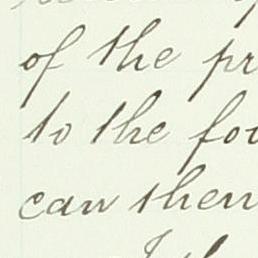 of the pr
to the fou
can then